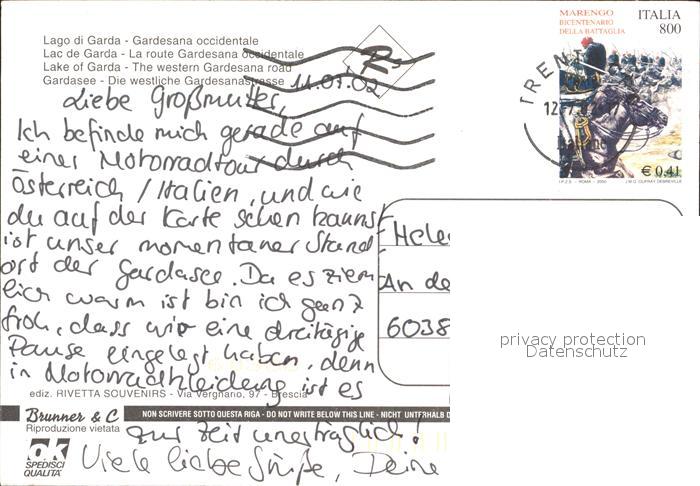 Lago di Garda - Gardesana occidentale
Lac de Garda - La route Gardesana occidentale
Lake of Garda - The western Gardesana road
Gardasee - Die westliche Gardesanastrasse
11.07.02
Liebe Großmutter,
Ich befinde mich gerade auf
einer Motorradtour durch
Österreich / Italien, und wie
du auf der Karte sehen kannst
ist unser momentaner Stand
ort der Gardasee. Da es ziem
lich warm ist bin ich ganz
froh, dass wir eine dreitägige
Pause eingelegt haben, denn
in Motorradkleidung ist es
zur Zeit unerträglich!
Viele liebe Grüße, Deine
ediz. RIVETTA SOUVENIRS - Via Vergnano, 97 - Brescia
Brunner & C
Riproduzione vietata
NON SCRIVERE SOTTO QUESTA RIGA - DO NOT WRITE BELOW THIS LINE - NICHT UNTERHALB D
ok
SPEDISCI
QUALITÀ
MARENGO
BICENTENARIO
DELLA BATTAGLIA
ITALIA
800
€ 0,41
I.P.Z.S. - ROMA - 2000
TRENT
Hele
An de
6038
privacy protection
Datenschutz